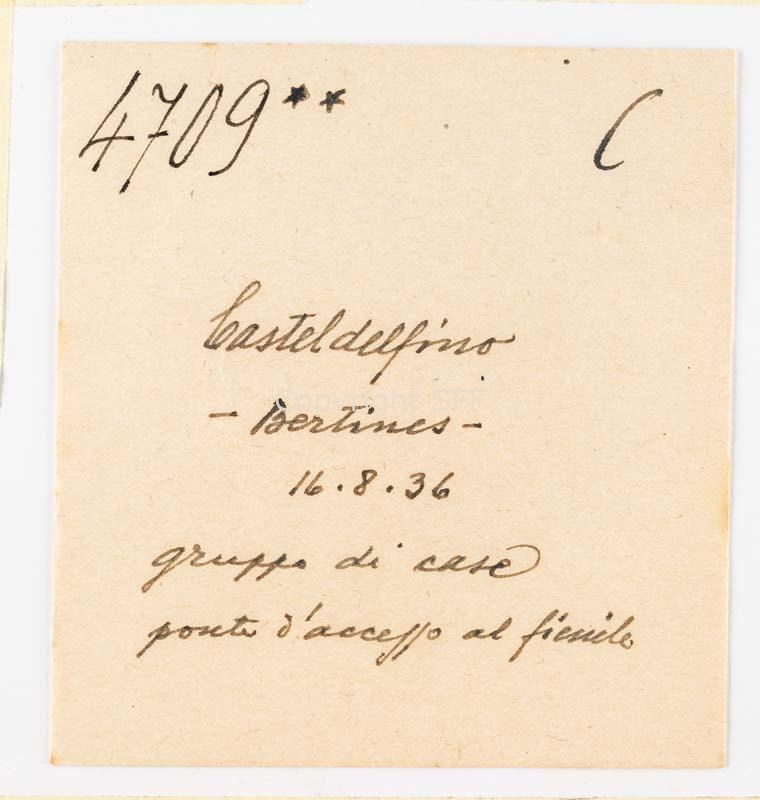 4709** C
Casteldelfino
- Bertines -
16.8.36
gruppo di case
ponte d'accesso al fienile